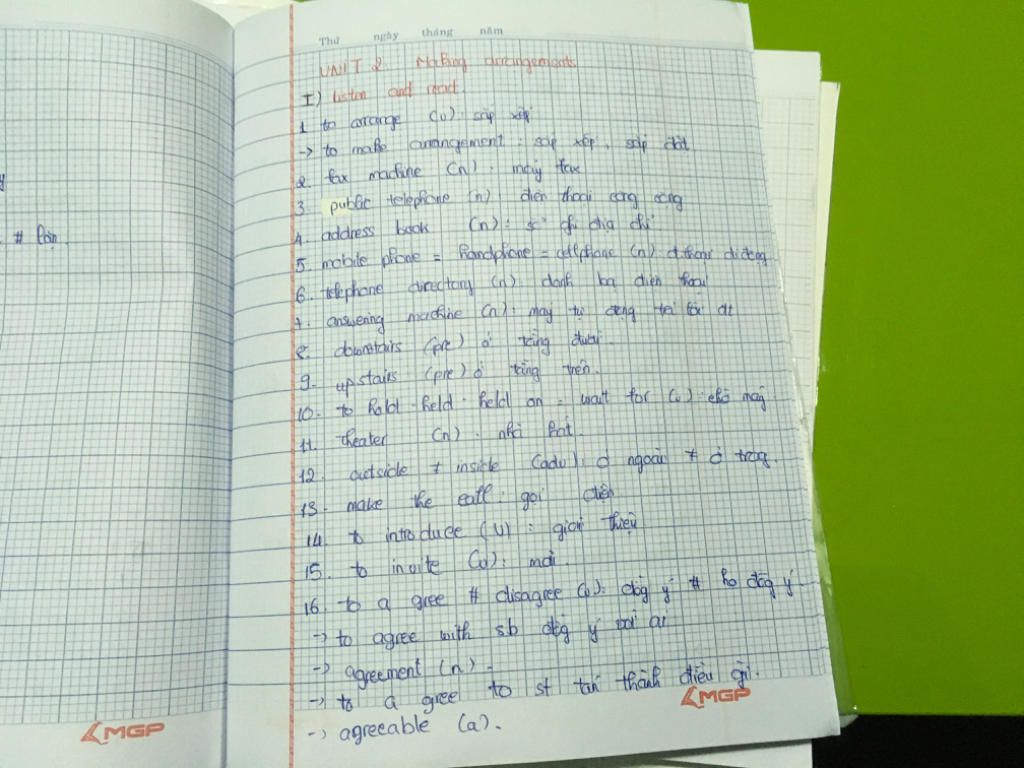 Thứ ngày tháng năm
UNIT 2 Making arrangements
I) listen and read.
1. to arrange (v): sắp xếp
-> to make arrangement: sắp xếp, sắp đặt
2. fax machine (n): máy fax
3. public telephone (n) điện thoại công cộng
4. address book (n): sổ ghi địa chỉ
5. mobile phone = handphone = cellphone (n) đ.thoại di động
6. telephone directory (n): danh bạ điện thoại
7. answering machine (n): máy tự động trả lời đt
8. downstairs (pre) ở tầng dưới.
9. upstairs (pre) ở tầng trên.
10. to hold - held - held on = wait for (v): chờ máy
11. theater (n): nhà hát.
12. outside ≠ inside (adv): ở ngoài ≠ ở trong.
13. make the call: gọi điện
14. to introduce (v): giới thiệu
15. to invite (v): mời.
16. to a gree # disagree (v): đồg ý # ko đồg ý
-> to agree with sb đồg ý với ai
-> agreement (n)
-> to a gree to st tán thành điều gì.
-> agreeable (a).
# lận.
MGP
MGP